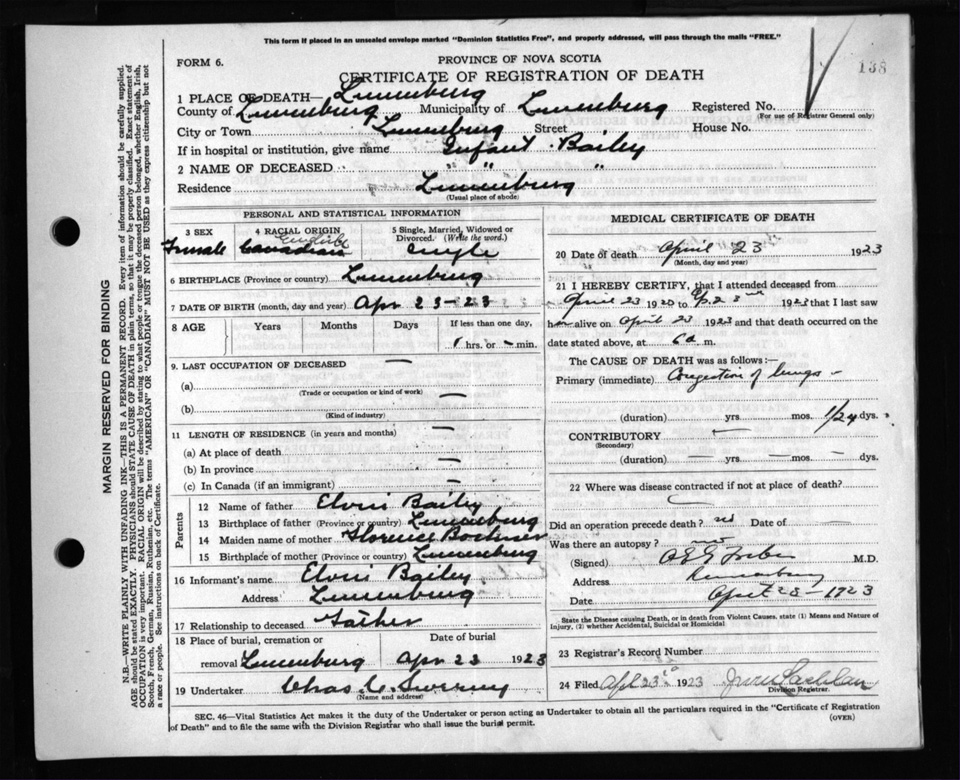 This form if placed in an unsealed envelope marked "Dominion Statistics Free", and properly addressed, will pass through the mails "FREE."
FORM 6.
PROVINCE OF NOVA SCOTIA
CERTIFICATE OF REGISTRATION OF DEATH
138
1 PLACE OF DEATH— Lunenburg
County of Lunenburg Municipality of Lunenburg Registered No.
(For use of Registrar General only)
City or Town Lunenburg Street House No.
If in hospital or institution, give name Infant Bailey
2 NAME OF DECEASED " " "
Residence Lunenburg
(Usual place of abode)
PERSONAL AND STATISTICAL INFORMATION
3 SEX 4 RACIAL ORIGIN 5 Single, Married, Widowed or Divorced. (Write the word.)
Female English Canadian Single
6 BIRTHPLACE (Province or country) Lunenburg
7 DATE OF BIRTH (month, day and year) Apr 23-23
8 AGE Years Months Days If less than one day,
1 hrs. or — min.
9. LAST OCCUPATION OF DECEASED —
(a) —
(Trade or occupation or kind of work)
(b) —
(Kind of industry)
11 LENGTH OF RESIDENCE (in years and months) —
(a) At place of death —
(b) In province —
(c) In Canada (if an immigrant) —
Parents
12 Name of father Elvin Bailey
13 Birthplace of father (Province or country) Lunenburg
14 Maiden name of mother Florence
15 Birthplace of mother (Province or country) Lunenburg
16 Informant's name Elvin Bailey
Address Lunenburg
17 Relationship to deceased Father
18 Place of burial, cremation or Date of burial
removal Lunenburg Apr 23 1923
19 Undertaker Chas C. Sweeny
(Name and address)
MEDICAL CERTIFICATE OF DEATH
20 Date of death April 23 1923
(Month, day and year)
21 I HEREBY CERTIFY, that I attended deceased from
April 23 1920 to 1923 that I last saw
her alive on April 23 1923 and that death occurred on the
date stated above, at 6 a m.
The CAUSE OF DEATH was as follows:—
Primary (immediate) Congestion of lungs —
(duration) yrs mos. 1/24 dys.
CONTRIBUTORY —
(Secondary)
(duration) — yrs — mos. — dys.
22 Where was disease contracted if not at place of death?
Did an operation precede death? no Date of —
Was there an autopsy? no
(Signed) M.D.
Address Lunenburg
Date April 23-1923
State the Disease causing Death, or in death from Violent Causes, state (1) Means and Nature of Injury, (2) whether Accidental, Suicidal or Homicidal
23 Registrar's Record Number
24 Filed April 23 1923
Division Registrar.
SEC. 46—Vital Statistics Act makes it the duty of the Undertaker or person acting as Undertaker to obtain all the particulars required in the "Certificate of Registration
of Death" and to file the same with the Division Registrar who shall issue the burial permit. (OVER)
MARGIN RESERVED FOR BINDING
N.B.—WRITE PLAINLY WITH UNFADING INK—THIS IS A PERMANENT RECORD. Every item of information should be carefully supplied.
AGE should be stated EXACTLY. PHYSICIANS should STATE CAUSE OF DEATH in plain terms, so that it may be properly classified. Exact statement of
OCCUPATION is very important. RACIAL ORIGIN will be described by stating to what people or tongue the deceased person belonged, whether English, Irish,
Scotch, French, German, Russian, Ruthenian, etc. The terms "AMERICAN" OR "CANADIAN" MUST NOT BE USED as they express citizenship but not
a race or people. See instructions on back of Certificate.